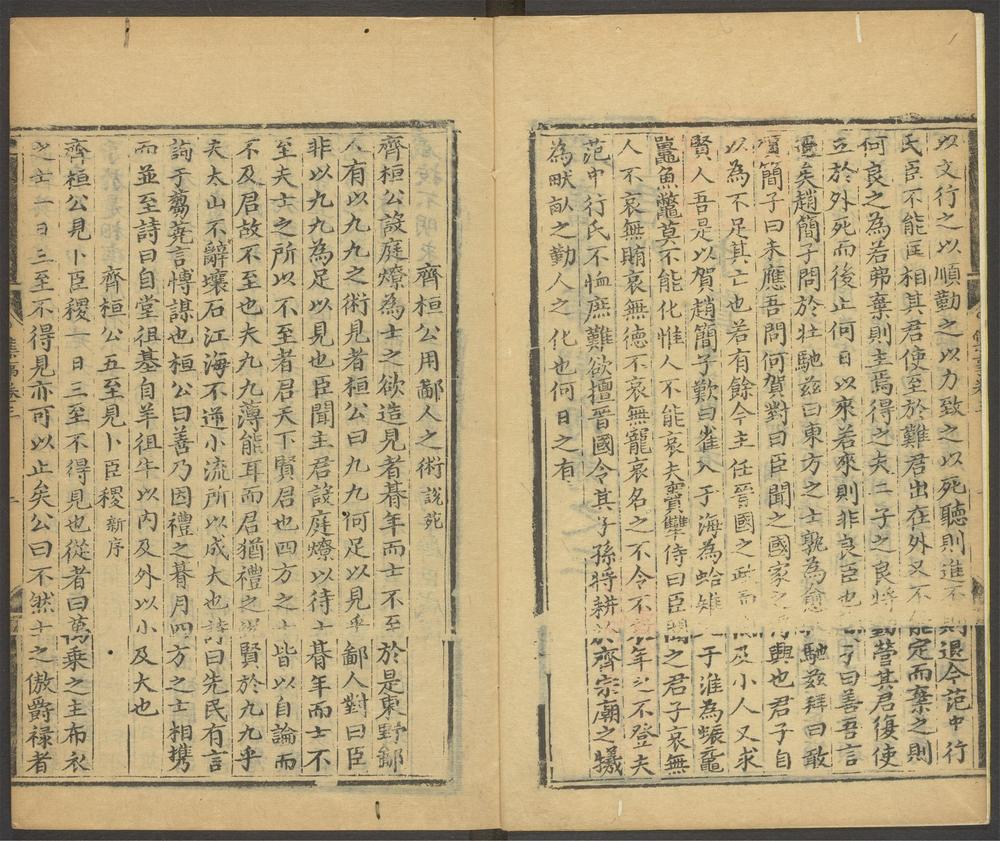 以文行之以順勤之以力致之以死聽則進不則退今范中行
氏臣不能匡相其君使至於難君出在外又不能定而棄之則
何良之為若弗棄則主焉得之夫二子之良將勤營其君復使
立於外死而後止何日以來若來則非良臣也簡子曰善吾言
過矣趙簡子問於壯馳茲曰東方之士孰為愈壯馳茲拜曰敢
賀簡子曰未應吾問何賀對曰臣聞之國家之將興也君子自
以為不足其亡也若有餘今主任晉國之政而問及小人又求
賢人吾是以賀趙簡子歎曰雀入于海為蛤雉入于淮為蜃黿
鼉魚鼈莫不能化惟人不能哀夫竇犨侍曰臣聞之君子哀無
人不哀無賄哀無德不哀無寵哀名之不令不哀年之不登夫
范中行氏不恤庶難欲擅晉國今其子孫將耕於齊宗廟之犧
為畎畝之勤人之化也何日之有
齊桓公用鄙人之術 說苑
齊桓公設庭燎為士之欲造見者朞年而士不至於是東野鄙
人有以九九之術見者桓公曰九九何足以見乎鄙人對曰臣
非以九九為足以見也臣聞主君設庭燎以待士朞年而士不
至夫士之所以不至者君天下賢君也四方之士皆以自論而
不及君故不至也夫九九薄能耳而君猶禮之況賢於九九乎
夫太山不辭壤石江海不逆小流所以成大也詩曰先民有言
詢于芻蕘言愽謀也桓公曰善乃因禮之朞月四方之士相携
而並至詩曰自堂徂基自羊徂牛以內及外以小及大也
齊桓公五至見卜臣稷 新序
齊桓公見卜臣稷一日三至不得見也從者曰萬乘之主布衣
之士一日三至不得見亦可以止矣公曰不然士之傲爵祿者